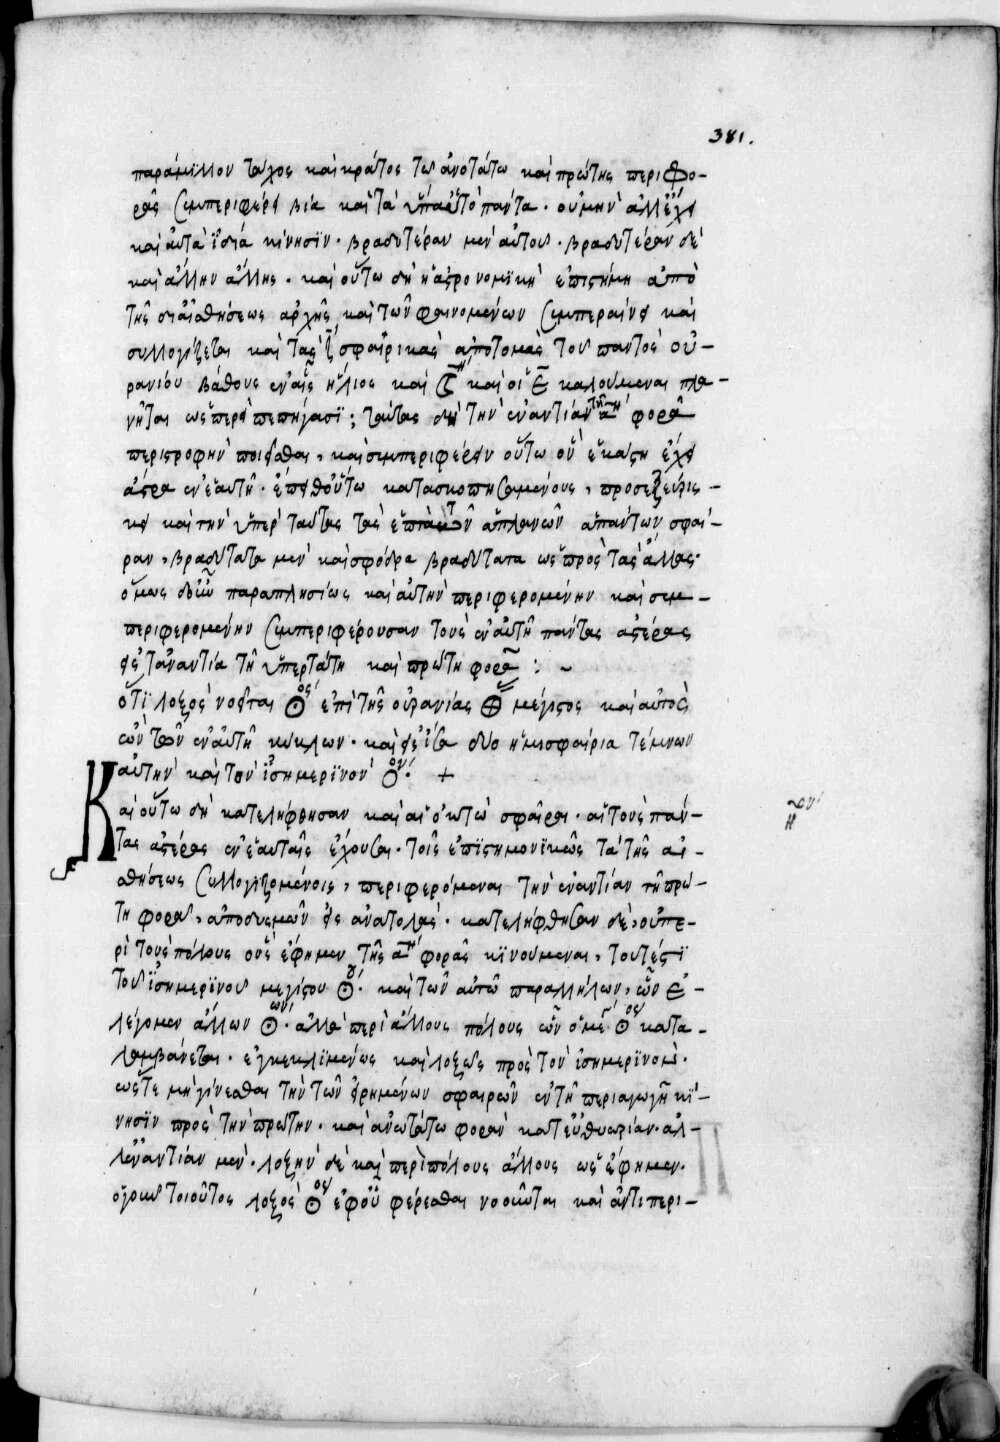 381.
παράμιλλον τάχος καὶ κράτος τῶ ἀνοτάτω καὶ πρώτης περιφο-
ρᾶς συμπεριφέρει βία καὶ τὰ ὑπ' αὐτὸ πάντα. οὐ μὴν ἀλλ' ἔχει
καὶ αὐτὰ ἰδία κίνησϊν. βραδυτέραν μὲν αὐτοῦ. βραδυτέραν δὲ
καὶ ἄλλην ἄλλης. καὶ οὕτω δὴ ἡ ἀστρονομϊκὴ ἐπιστήμη ἀπὸ
τῆς δι' αἰσθήσεως ἀρχῆς καὶ τῶν φαινομένων συμπεραίνει καὶ
συλλογίζεται καὶ τὰς ζ σφαιρικὰς ἀποτομὰς τοῦ παντὸς οὐ-
ρανίου βάθους ἐν αἷς ἥλιος καὶ καὶ οἱ ε καλούμεναι πλα-
νῆται ὥσπερ ἐπεπήγασϊ; ταύτας δὴ τὴν ἐναντίαν τῆ α φορᾶ
περιστροφὴν ποιεῖσθαι, καὶ συμπεριφέρειν οὕτω ὃν ἑκάστη ἔχει
ἀστέρα ἐν ἑαυτῆ. ἔπειθ' οὕτω κατασκοπησαμένους, προσεξευρίσ-
κει καὶ τὴν ὑπὲρ ταύτας τὰς ἑπτὰ τῶν ἀπλανῶν ἁπάντων σφαῖ-
ραν, βραδύτατα μὲν καὶ σφόδρα βραδύτατα ὡς πρὸς τὰς ἄλλας.
ὅμως δ' οὖν παραπλησίως καὶ αὐτὴν περιφερομένην καὶ συμ-
περιφερομένην συμπεριφέρουσαν τοὺς ἐν αὐτῆ πάντας ἀστέρας
εἰς τἀναντία τῆ ὑπερτάτη καὶ πρώτη φορᾶ : ~
ὅτϊ λοξὸς νοεῖται ☉ος ἐπὶ τῆς οὐρανίας μέγιστος καὶ αὐτὸς
ὢν τῶν ἐν αὐτῆ κύκλων. καὶ εἰς ἴσα δύο ἡμισφαίρια τέμνων
αὐτὴν καὶ τὸν ἰσημερϊνὸν ☉ον. +
Καὶ οὕτω δὴ κατελήφθησαν καὶ αἱ ὀκτὼ σφαῖραι. αἱ τοὺς πάν-
τας ἀστέρας ἐν ἑαυταῖς ἔχουσαι. τοῖς ἐπϊστημονϊκῶς τὰ τῆς αἰ-
σθήσεως συλλογιζομένοις, περιφερόμεναι τὴν ἐναντίαν τῆ πρώ-
τη φορᾶ, ἀπὸ δυσμῶν εἰς ἀνατολάς. κατελήφθησαν δὲ, οὐ πε-
ρὶ τοὺς πόλους οὓς ἔφημεν τῆς α φορᾶς κϊνούμεναι, τουτέστϊ
τοῦ ἰσημερϊνοῦ μεγίστου ☉ου. καὶ τῶν αὐτῶ παραλλήλων, ὧν ἐ-
λέγομεν ἄλλων ☉ων. ἀλλὰ περὶ ἄλλους πόλους ὧν ὁ ☉ος κατα-
λαμβάνεται. ἐγκεκλϊμένως καὶ λοξῶς πρὸς τὸν ἰσημερϊνὸν.
ὥστε μὴ γίνεσθαι τὴν τῶν εἰρημένων σφαιρῶν ἐν τῆ περιαγωγῆ κί-
νησϊν πρὸς τὴν πρώτην. καὶ ἀνωτάτω φορὰν κατ' εὐθυωρίαν. ἀλ-
λ' ἐναντίαν μὲν. λοξὴν δὲ καὶ περὶ πόλους ἄλλους ὡς ἔφημεν.
ὁ γοῦν τοιοῦτος λοξὸς ☉ος ἐφ' οὗ φέρεσθαι νοοῦνται καὶ ἀντιπερι-